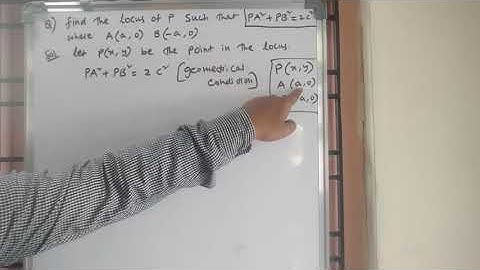 Q) find the locus of P such that PA²+PB²=2c²
where A(a,0) B(-a,0)
Sol let P(x,y) be the point in the locus.
PA²+PB²= 2 c² [geometrical condition]
P(x,y)
A(a,0)
a,0)